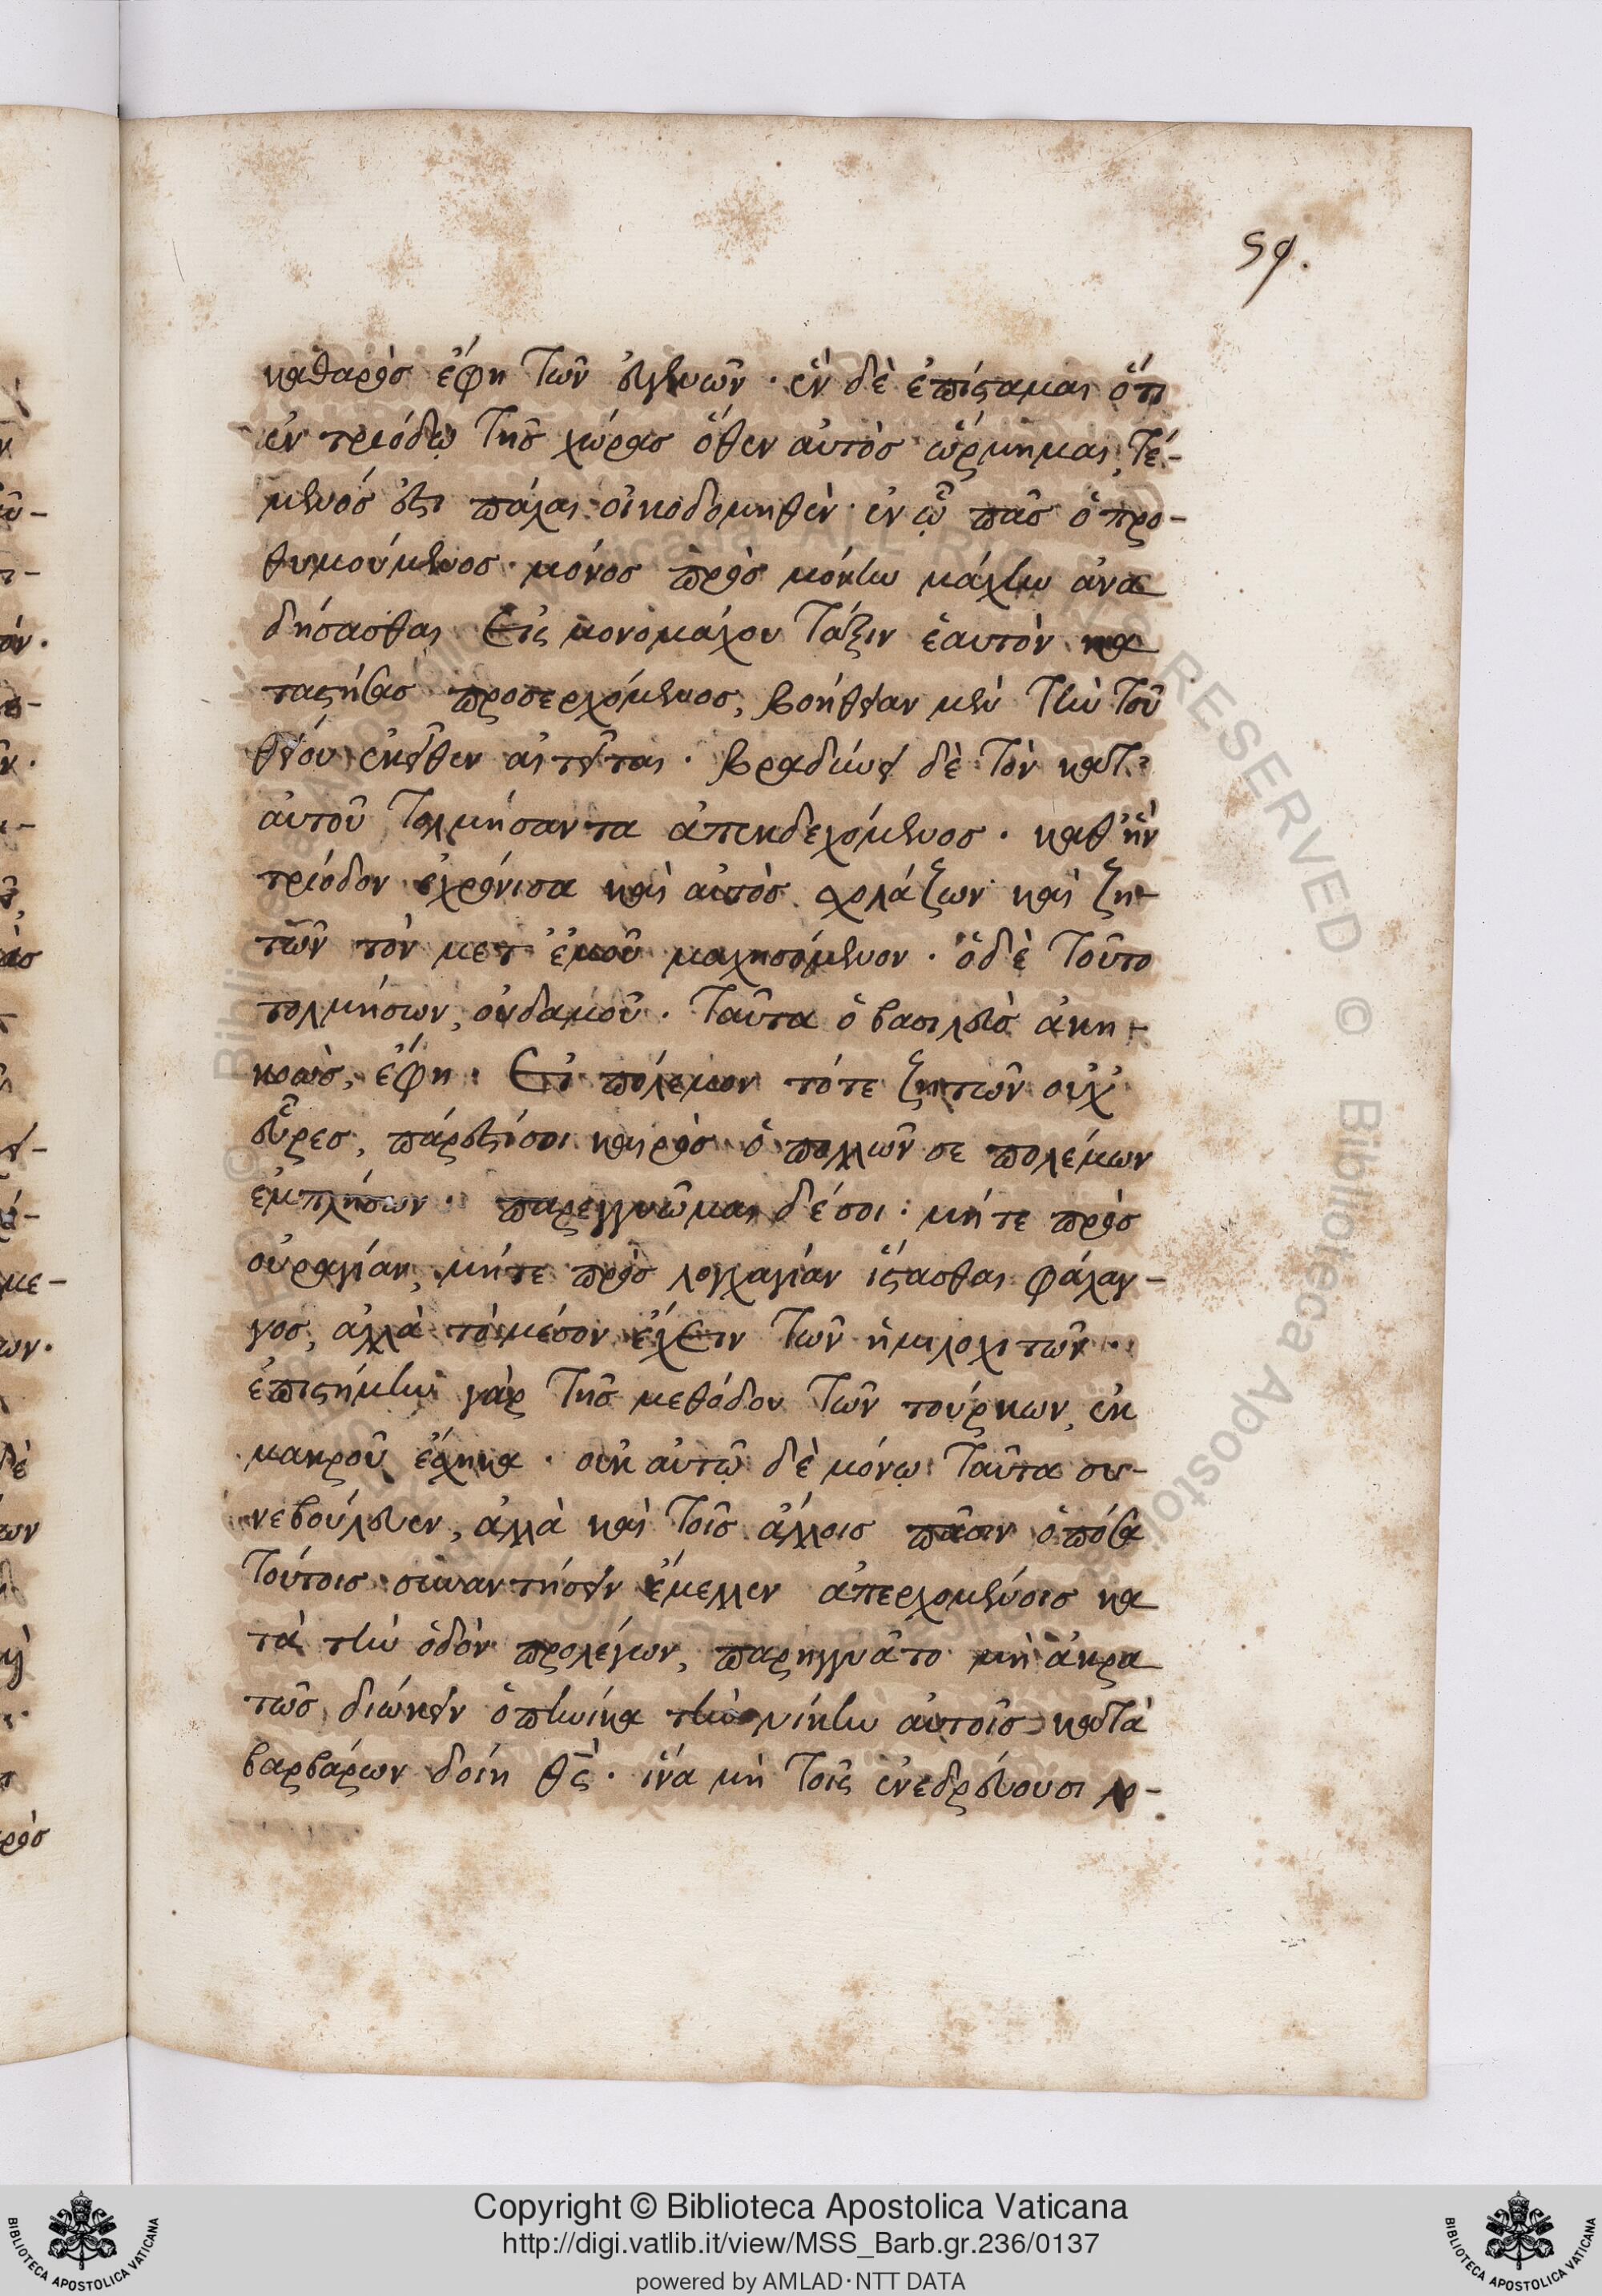 59.
καθαρὸσ ἔφη τῶν εὐγενῶν · ἓν δὲ ἐπίσταμαι ὅτι
ἐν τριόδῳ τῆσ χώρασ ὅθεν αὐτὸσ ὥρμημαι, τέ-
μενόσ ἐστι πάλαι οἰκοδομηθὲν · ἐν ᾧ πᾶσ ὁ προ-
θυμούμενοσ · μόνοσ πρὸσ μόνην μάχην ἀνα
δήσασθαι εἰς μονομάχου τάξιν ἑαυτὸν κα
ταστήσασ προσερχόμενοσ, βοήθειαν μὲν τὴν τοῦ
θείου ἐκεῖθεν αἰτεῖται · βραδύνει δὲ τὸν κατ'
αὐτοῦ τολμήσαντα ἀπεκδεχόμενοσ · καθ' ἣν
τρίοδον ἐχρόνισα καὶ αὐτὸσ σχολάζων καὶ ζη-
τῶν τὸν μετ' ἐμοῦ μαχησόμενον · ὁ δὲ τοῦτο
τολμήσων, οὐδαμοῦ · ταῦτα ὁ βασιλεὺσ ἀκη-
κοὼσ, ἔφη · εἰ πόλεμον τότε ζητῶν οὐχ
εὗρεσ, πάρεστί σοι καιρὸσ ὁ πολλῶν σε πολέμων
ἐμπλήσων · παρεγγυῶμαι δέ σοι : μήτε πρὸσ
οὐραγίαν, μήτε πρὸσ λοχαγίαν ἵστασθαι φάλαγ-
γοσ, ἀλλὰ τὸ μέσον ἔχειν τῶν ἡμιλοχιτῶν ·
ἐπιστήμην γὰρ τῆσ μεθόδου τῶν τούρκων, ἐκ
μακροῦ ἔσχηκα · οὐκ αὐτῷ δὲ μόνῳ ταῦτα συ-
νεβούλευεν, ἀλλὰ καὶ τοῖσ ἄλλοισ πᾶσιν ὁπόσα
τούτοισ συναντήσειν ἔμελλεν ἀπερχομένοισ κα
τὰ τὴν ὁδὸν προλέγων, παρηγγυᾶτο μὴ ἀκρα
τῶσ διώκειν ὁπηνίκα τὴν νίκην αὐτοῖσ κατὰ
βαρβάρων δοίη θς · ἵνα μὴ τοῖς ἐνεδρεύουσι
Copyright © Biblioteca Apostolica Vaticana
http://digi.vatlib.it/view/MSS_Barb.gr.236/0137
powered by AMLAD·NTT DATA